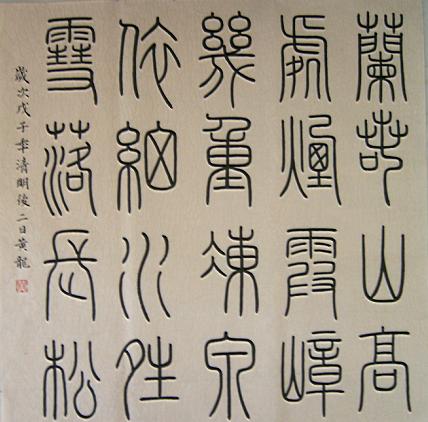 蘭若山高
處煙霞嶂
幾重凍泉
依細水
雪落長松
歲次戊子年清明後二日黃龍